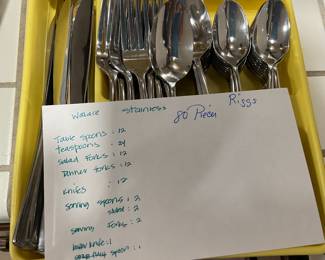 Wallace stainless
80 Piece Riggs
Table spoons : 12
teaspoons : 24
salad forks : 12
Dinner forks : 12
knives : 12
serving spoons : 2
slotted : 2
serving forks : 2
butter knife : 1
spoon : 1